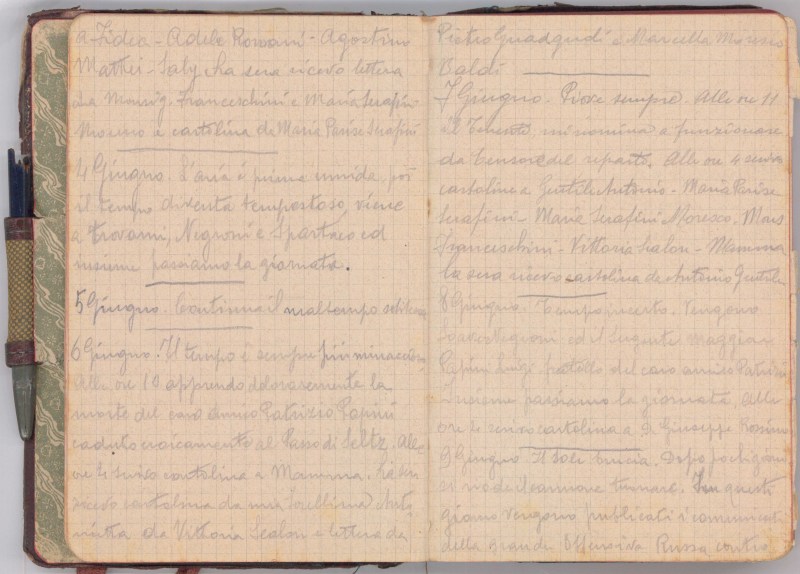 a Fidea - Adele Rossani - Agostino
Mattei - Saly. La sera ricevo lettera
da Monsig. Franceschini e Maria Serafini
Moresco e cartolina da Maria Parise Serafini
4 Giugno. L'aria è prima umida, poi
il tempo diventa tempestoso, viene
a trovarmi, Negroni e Spartaco ed
insieme passiamo la giornata.
5 Giugno. Continua il maltempo
6 Giugno. Il tempo è sempre più minaccioso
Alle ore 10 apprendo dolorosamente la
morte del caro amico Patrizio Papini
caduto eroicamente al Passo di Seltz. Alle
ore 4 scrivo cartolina a Mamma. La sera
ricevo cartolina da mia Sorellina Anto
nietta da Vittoria Scalon e lettera da
Pietro Guadagni e Marcella Moresco
Baldi
7 Giugno. Piove sempre. Alle ore 11
il Tenente mi nomina a funzionare
da Censore del reparto. Alle ore 4 scrivo
cartoline a Gentile Antonio - Maria Parise
Serafini - Maria Serafini Moresco. Mons
Franceschini - Vittoria Scalon - Mamma
la sera ricevo cartolina da Antonio Gentile
8 Giugno. Tempo incerto. Vengono
Negroni ed il Sergente maggiore
Papini Luigi fratello del caro amico Patrizio
Insieme passiamo la giornata. Alle
ore 4 scrivo cartolina a D. Giuseppe Rossino
9 Giugno. Il Sole brucia. Dopo pochi giorni
si riode il cannone tuonare. In questi
giorni vengono pubblicati i comunicati
della grande Offensiva Russa contro